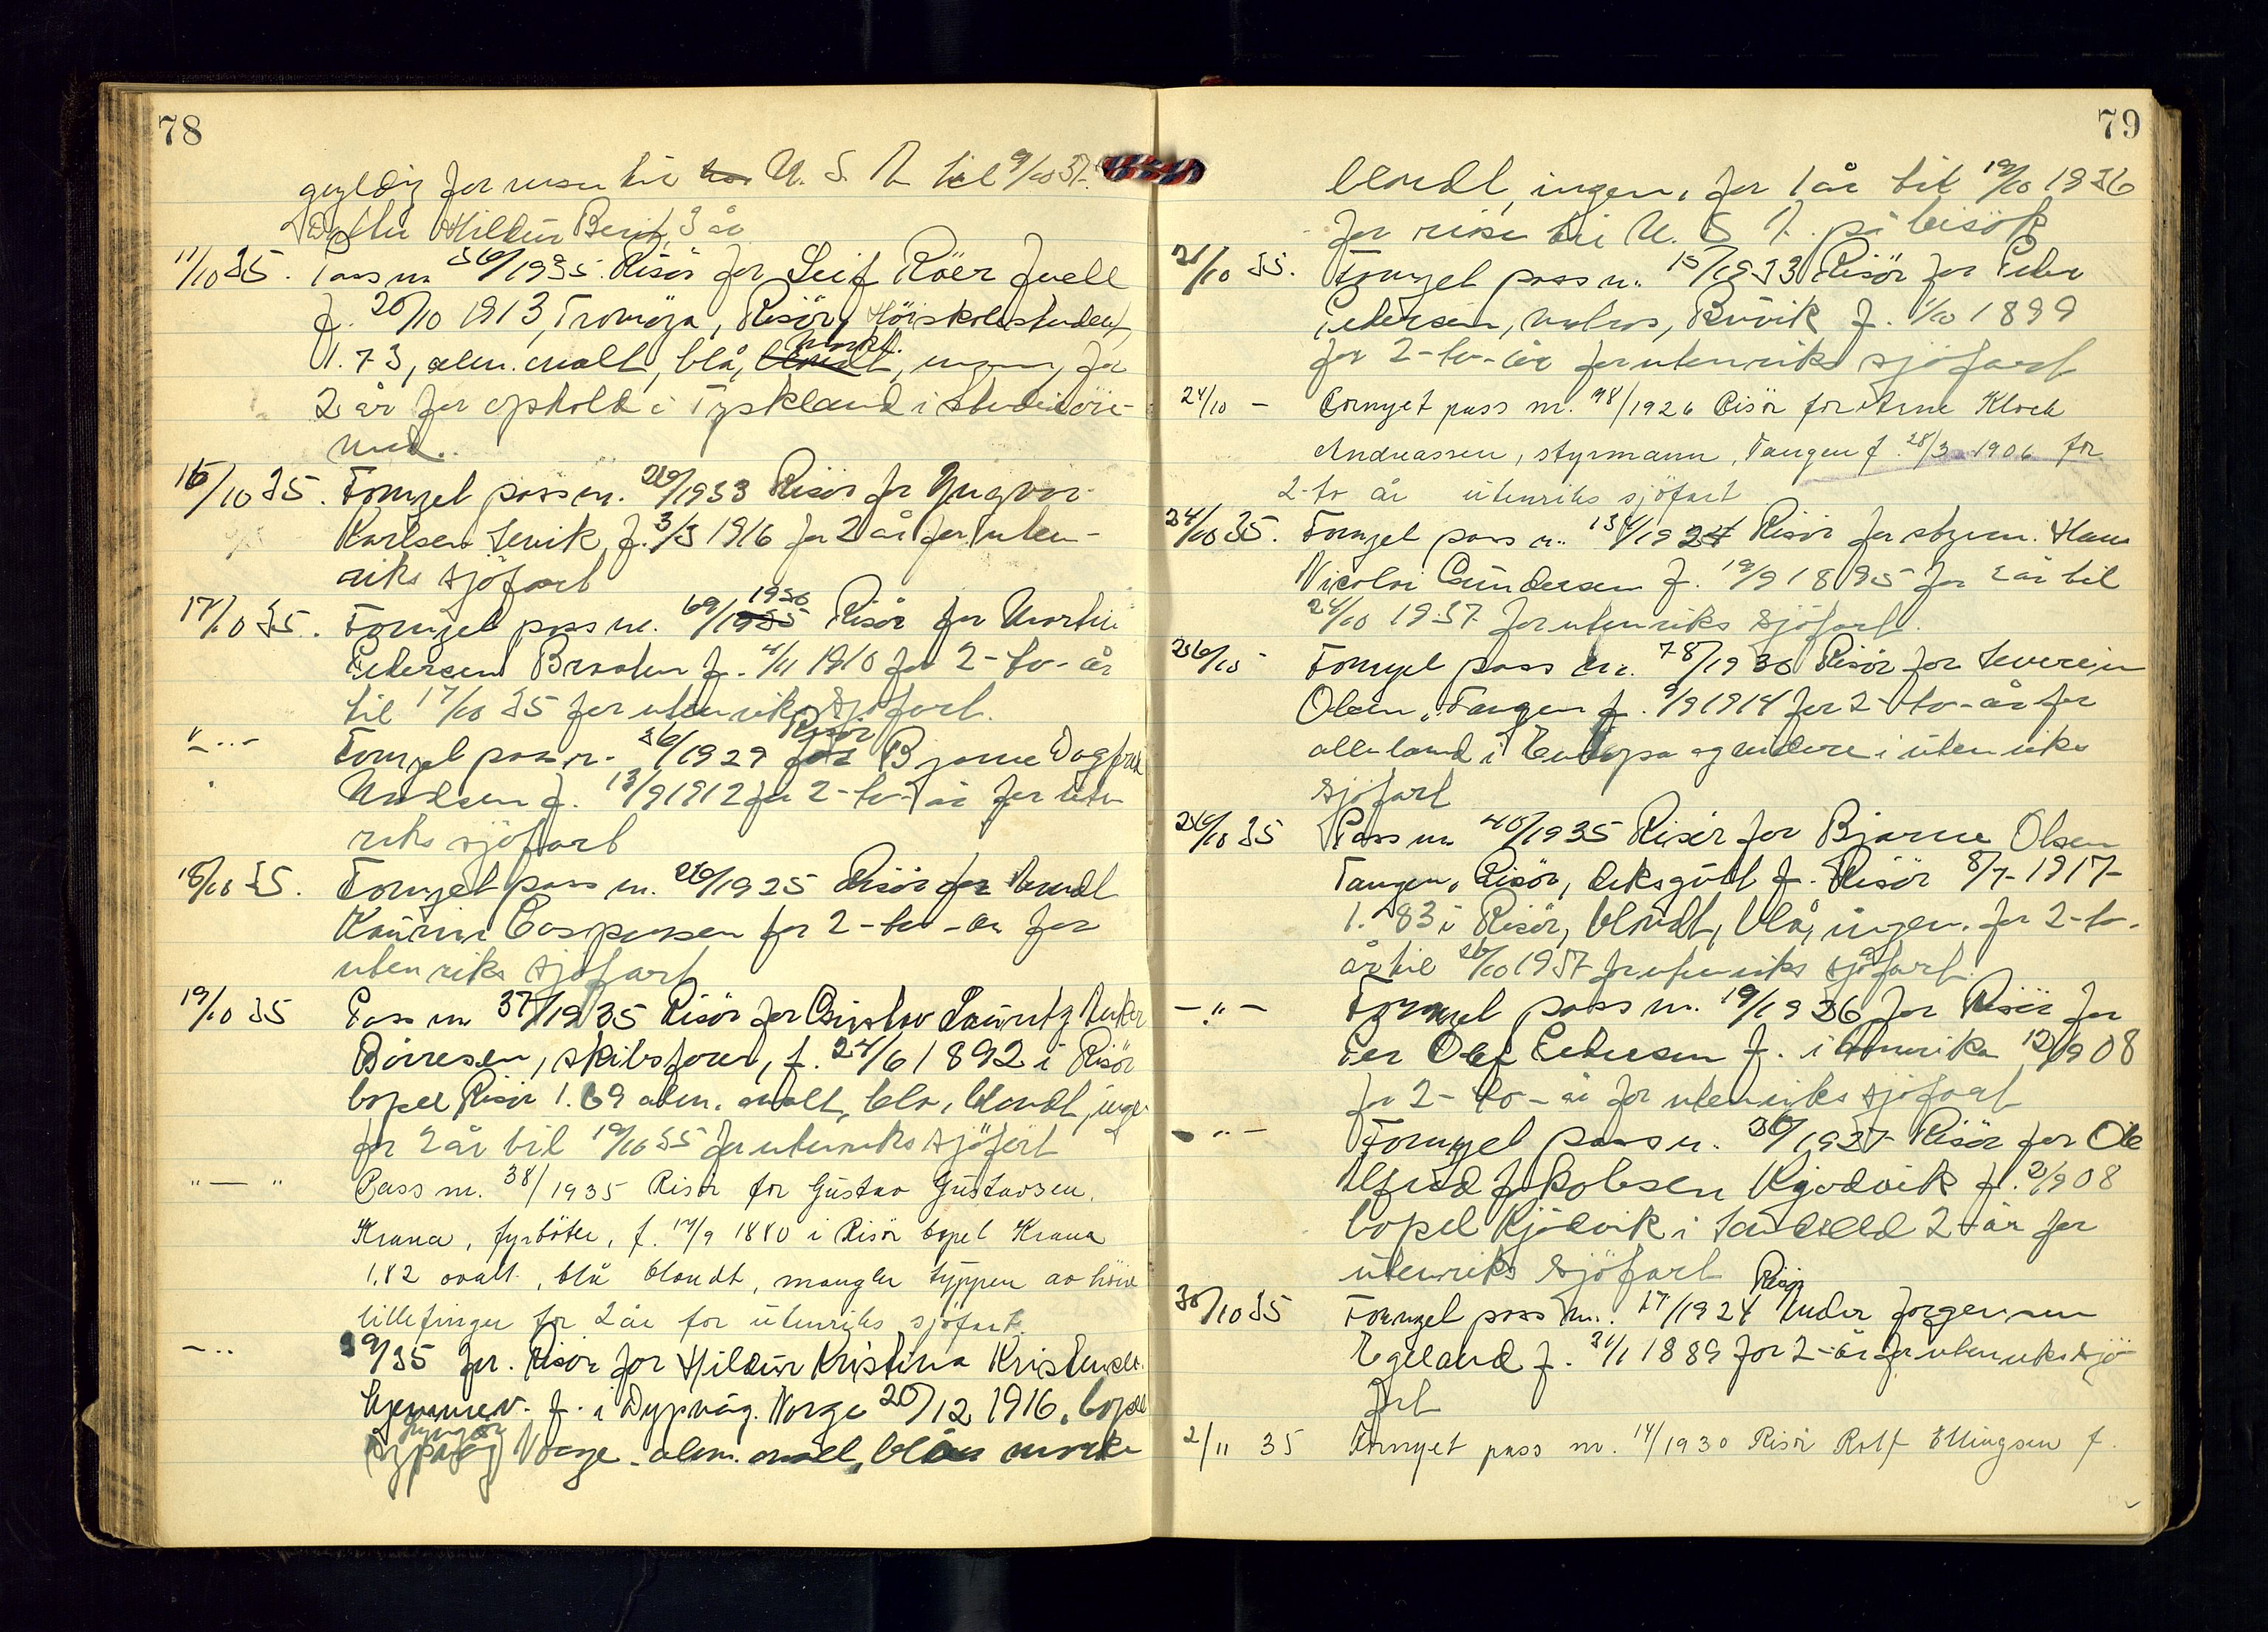 78
gyldig for reise til U. S. A til 9/10 37.
Datter Hildur Berit, 3 år
11/10 35. Pass nr. 36/1935. Risör for Leif Röer Juell
f. 20/10 1913, Tromöya, Risör, Höiskolestudent,
mörkt.
1.73, alm. ovalt, blå, blondt, ingen, for
2 år for ophold i Tyskland i studieöie-
med.
16/10 35. Fornyet pass nr. 26/1933 Risör for Yngvar
Karlsen Lervik f. 3/3 1916 for 2 år for uten-
riks sjöfart
1930
17/10 35. Fornyet pass nr. 69/1935 Risör for Martin
Pedersen Braaten f. 4/11 1910 for 2-to-år
til 17/10 35 for utenriks sjöfart.
Risör
" - Fornyet pass nr. 36/1929 for Bjarne Dagfred
Madsen f. 13/9 1912 for 2-to-år for uten-
riks sjöfart
18/10 35. Fornyet pass nr. 26/1925 Risör for
Kaurin Caspersen for 2-to-år for
utenriks sjöfart
19/10 35 Pass nr 37/1935 Risör for Gustav Lauritz
Börresen, skibsförer, f. 24/6 1892 i Risör
bopel Risör 1.69 alm. ovalt, blå, blondt, ingen
for 2 år til 19/10 35 for utenriks sjöfart
" — " Pass nr. 38/1935 Risör for Gustav Gustavsen,
Krana, fyrböter, f. 17/9 1880 i Risör bopel Krana
1,82 ovalt, blå blondt, mangler typpen av höire
lillefinger for 2 år for utenriks sjöfart.
- " 39/35 for. Risör for Hildur Kristina Kristensen
Hjemmev. f. i Dypvåg. Norge 20/12 1916, bopel
Lyngör
Dypvåg Norge. alm. ovalt, blå mörke
79
blondt, ingen, for 1 år til 19/10 1936
for reise til U. S A. på besök
21/10 35. Fornyet pass nr. 15/1933 Risör for Peder
Pedersen, matros, Buvik f. 1/10 1899
for 2-to-år for utenriks sjöfart
24/10 - Fornyet pass nr. 98/1926 Risör for Arne Klock
Andreassen, styrmann, Tangen f. 28/3 1906 for
2-to år utenriks sjöfart
24/10 35. Fornyet pass nr. 134/1924 Risör for styrm. Hans
Nicolai Gundersen f. 19/9 1895 for 2 år til
24/10 1937 for utenriks sjöfart.
26/10 - Fornyet pass nr. 78/1930 Risör for Severin
Olsen, Tangen f. 9/9 1914 for 2-to-år for
alle land i Europa og videre i utenriks
sjöfart
26/10 35 Pass nr 40/1935 Risör for Bjarne Olsen
Tangen, Risör, deksgutt f. Risör 8/7-1917-
1.83 i Risör, blondt, blå, ingen. for 2-to-
år til 26/10 1937 for utenriks sjöfart.
- " - Fornyet pass nr. 19/1936 for Risör for
Per Olaf Pedersen f. i Amerika 12/9 08
for 2-to-år for utenriks sjöfart
- " - Fornyet pass nr. 30/1927 Risör for Ole
Alfred Jakobsen Kjödvik f. 2/9 08
bopel Kjödvik i Söndeled 2-år for
utenriks sjöfart
Risör
30/10 35 Fornyet pass nr. 17/1924 Peder Jörgensen
Egeland f. 31/1 1889 for 2-år for utenriks sjö-
fart
2/11 35 Fornyet pass nr. 14/1930 Risör Rolf Ellingsen f.